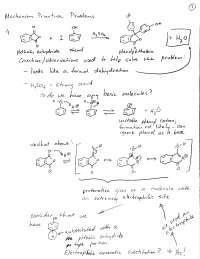 ①
Mechanism Practice Problems
1
+ 2
H₂SO₄
+ H₂O
phthalic anhydride phenol phenolphthalein
Courses/observations used to help solve this problem:
- looks like a formal dehydration
- H₂SO₄ - strong acid
→ do we have any basic molecules?
+ H₂O
unstable phenyl cation,
formation not likely - can
ignore phenol as a base
what about:
protonation gives us a molecule with
an extremely electrophilic site
consider that we
have
substituted with a
phthalic anhydride
type portion.
Electrophilic aromatic substitution? → Yes!